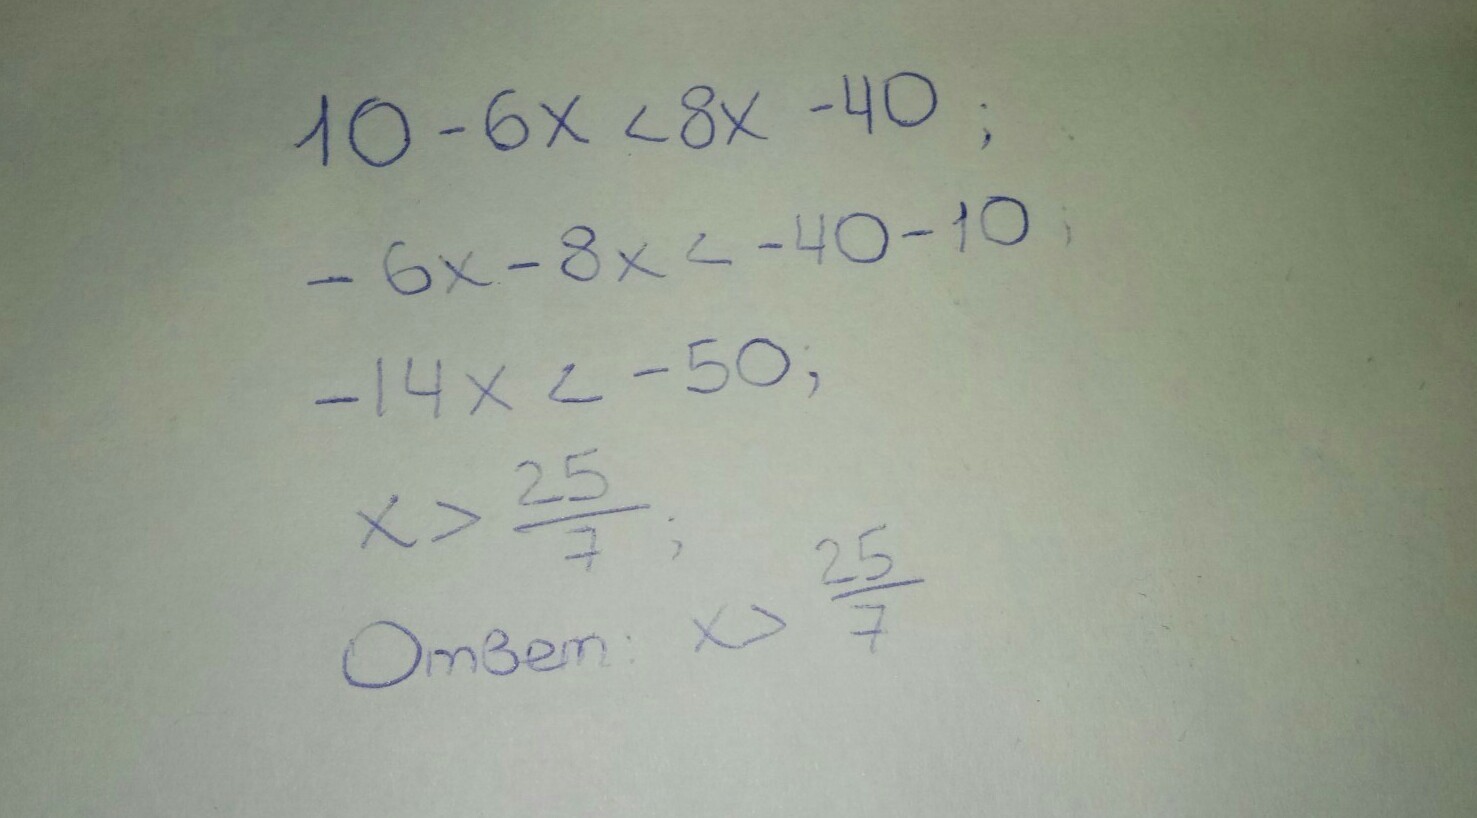 10 - 6x < 8x - 40 ;
- 6x - 8x < - 40 - 10 ;
- 14x < - 50 ;
x > 25/7 ;
Ответ: x > 25/7